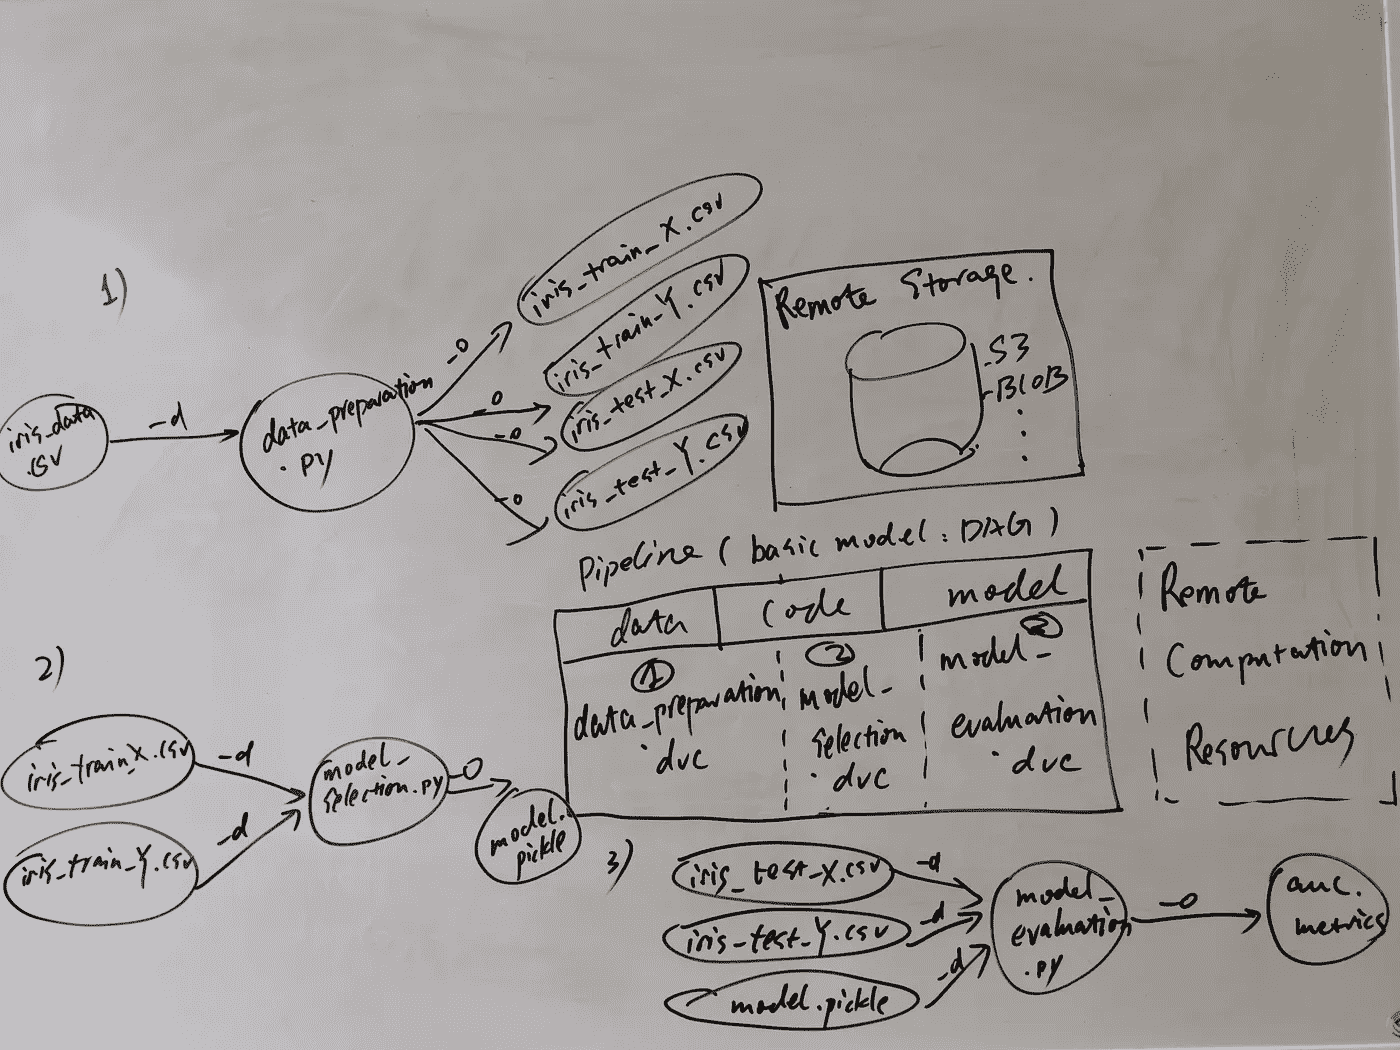 1)
iris_data
.csv
-d
data_preparation
.py
-o
-o
-o
-o
iris_train_X.csv
iris_train_Y.csv
iris_test_X.csv
iris_test_Y.csv
Remote Storage.
-S3
-BLOB
Pipeline (basic model: DAG)
data
code
model
1
data_preparation
.dvc
2
model_
selection
.dvc
model_
evaluation
.dvc
Remote
Computation
Resources
2)
iris_train_X.csv
-d
iris_train_Y.csv
-d
model_
selection.py
-o
model.
pickle
3)
iris_test_X.csv
-d
iris_test_Y.csv
-d
model.pickle
-d
model_
evaluation
.py
-o
auc.
metrics